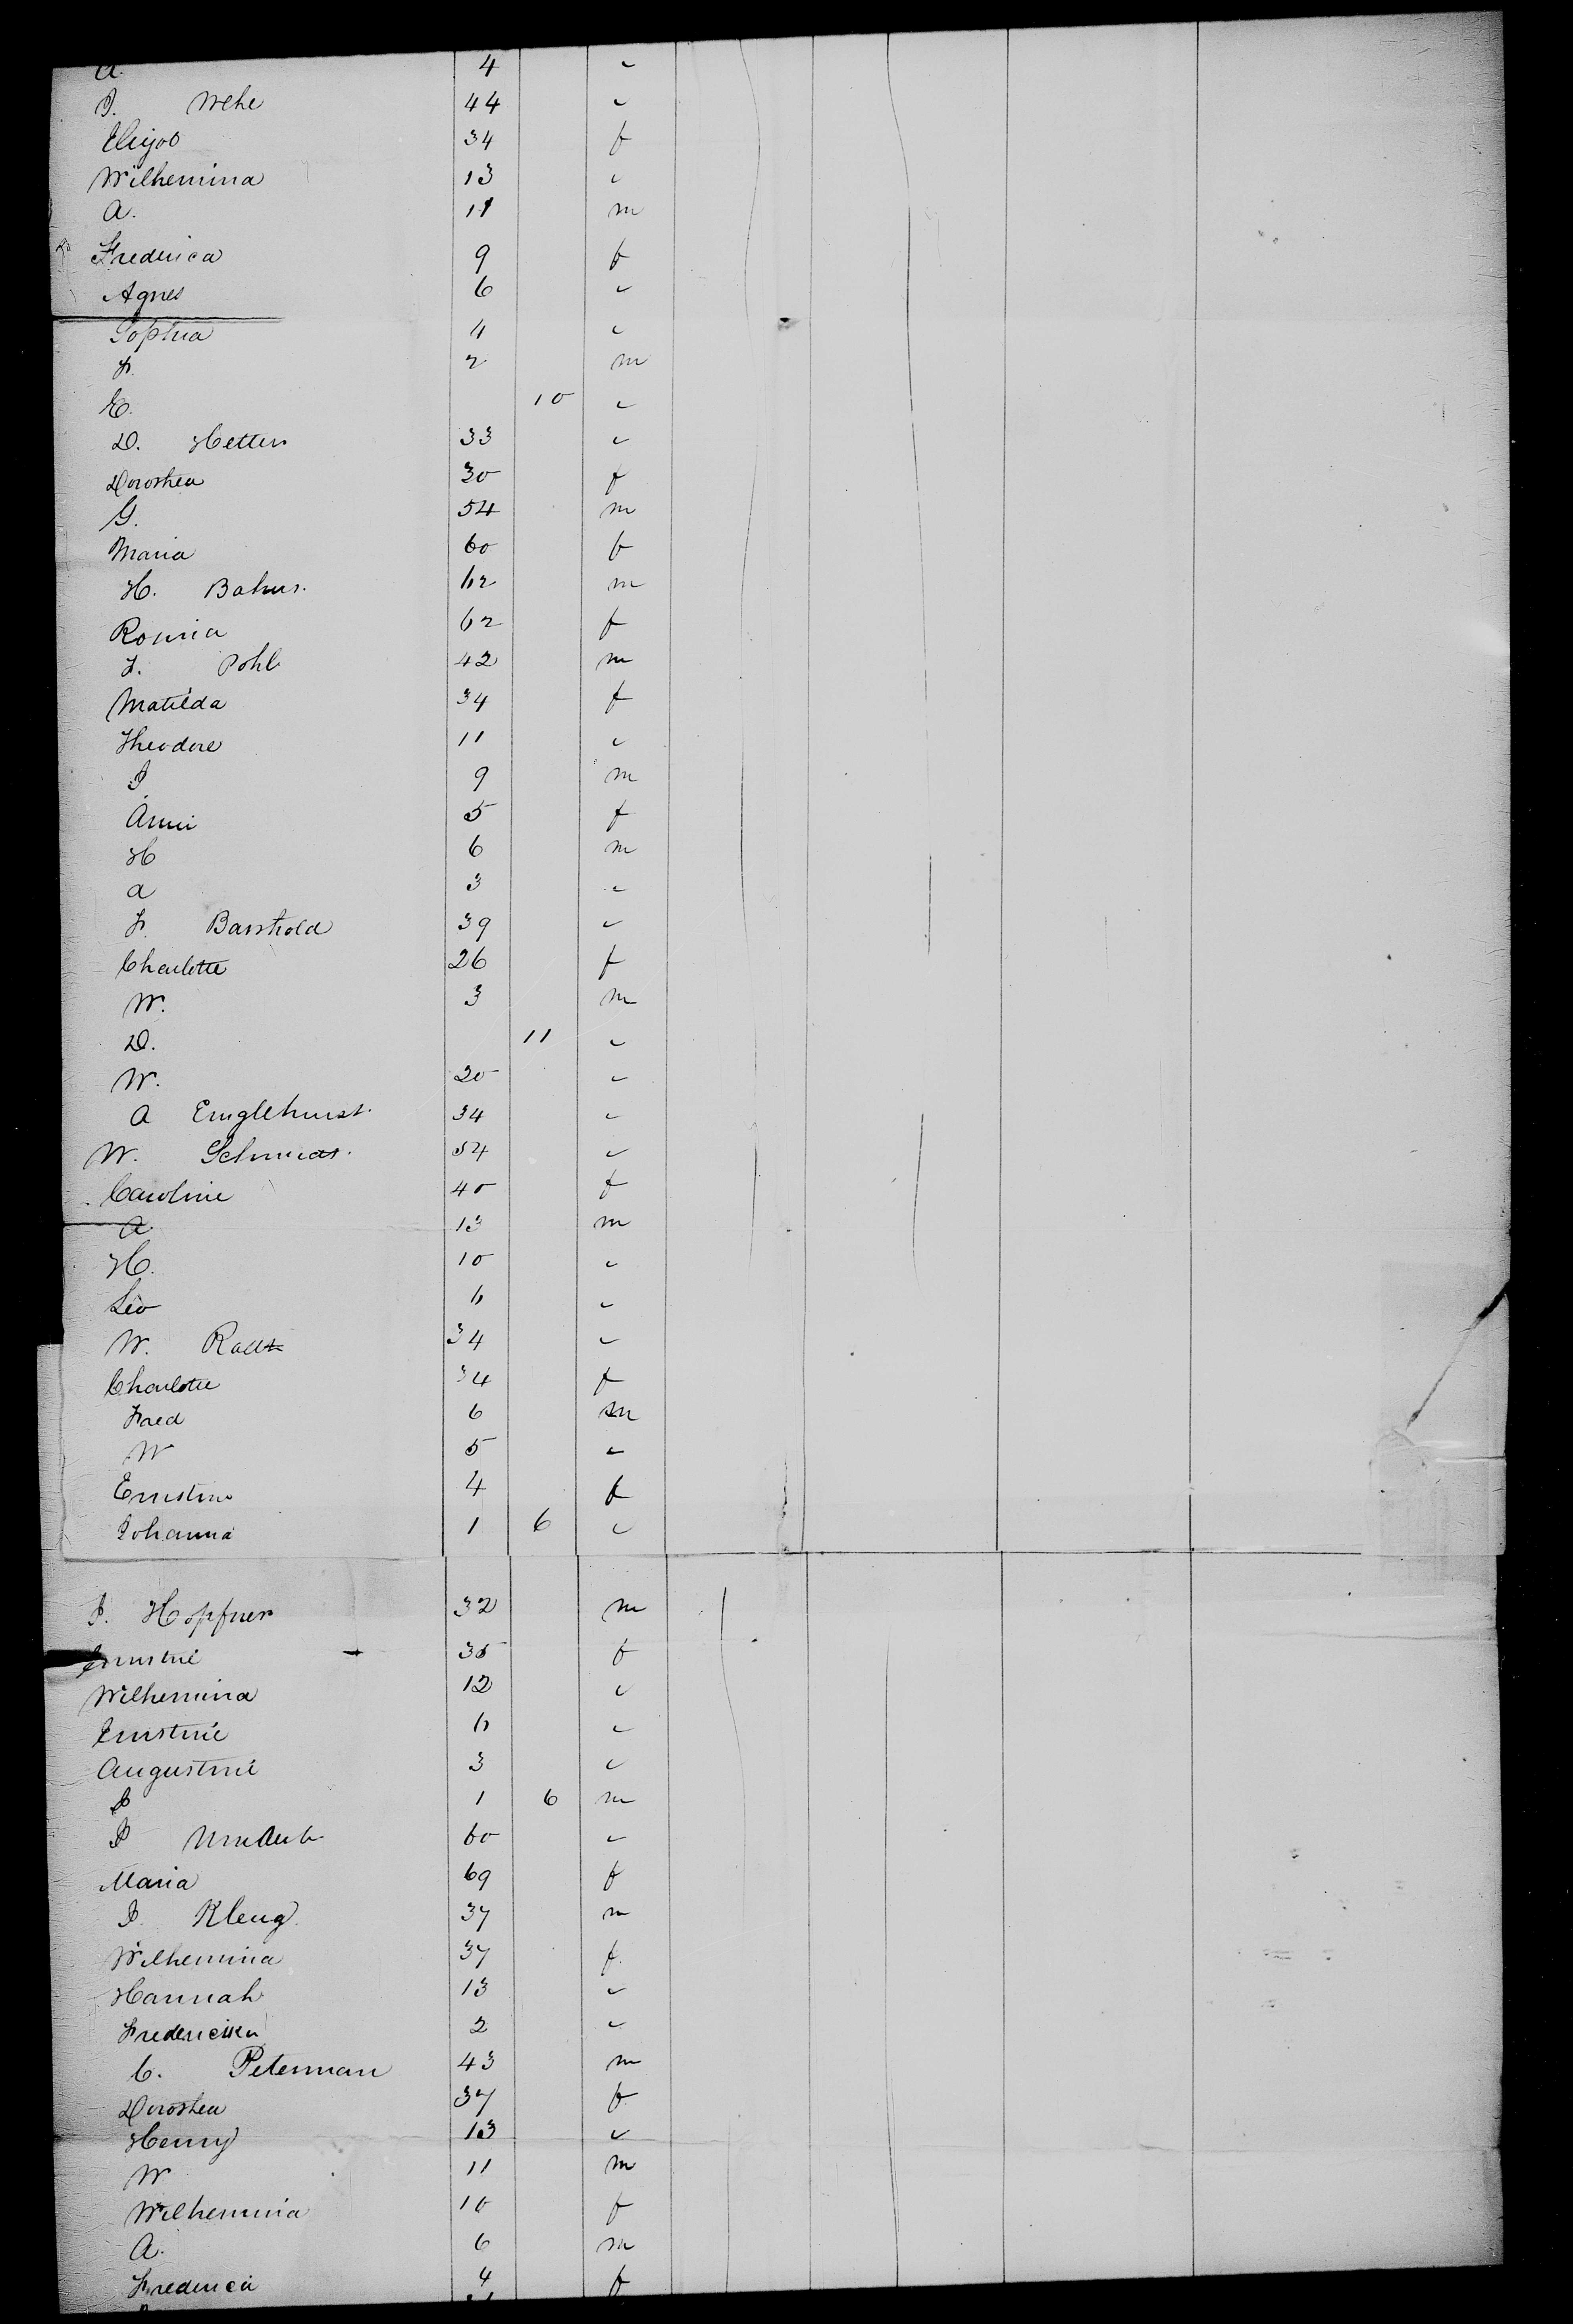 A. 4 "
J. Wehe 44 "
34 f
Wilhemina 13 "
A. 11 m
Frederica 9 f
Agnes 6 "
Sophia 4 "
F. 2 m
E. 10 "
D. Hetter 33 "
Dorothea 30 f
G. 54 m
Maria 60 f
H. 62 m
62 f
F. Pohl 42 m
Matilda 34 f
Theodore 11 "
J 9 m
5 f
H 6 m
A 3 "
F. Barthold 39 "
Charlotte 26 f
W. 3 m
D. 11 "
W. 20 "
A Englehurst 34 "
W. 54 "
Caroline 40 f
A. 13 m
H. 10 "
Leo 6 "
W. 34 "
Charlotte 34 f
Fred 6 m
W 5 "
Ernstine 4 f
Johanna 1 6 "
J. Hopfner 32 m
Ernstine 35 f
Wilhemina 12 "
Ernstine 6 "
Augustine 3 "
J 1 6 m
J 60 "
Maria 69 f
J. Kleng 37 m
Wilhemina 37 f
Hannah 13 "
Fredericka 2 "
C. Peterman 43 m
Dorothea 37 f
Henry 13 "
W 11 m
Wilhemina 10 f
A. 6 m
Frederica 4 f